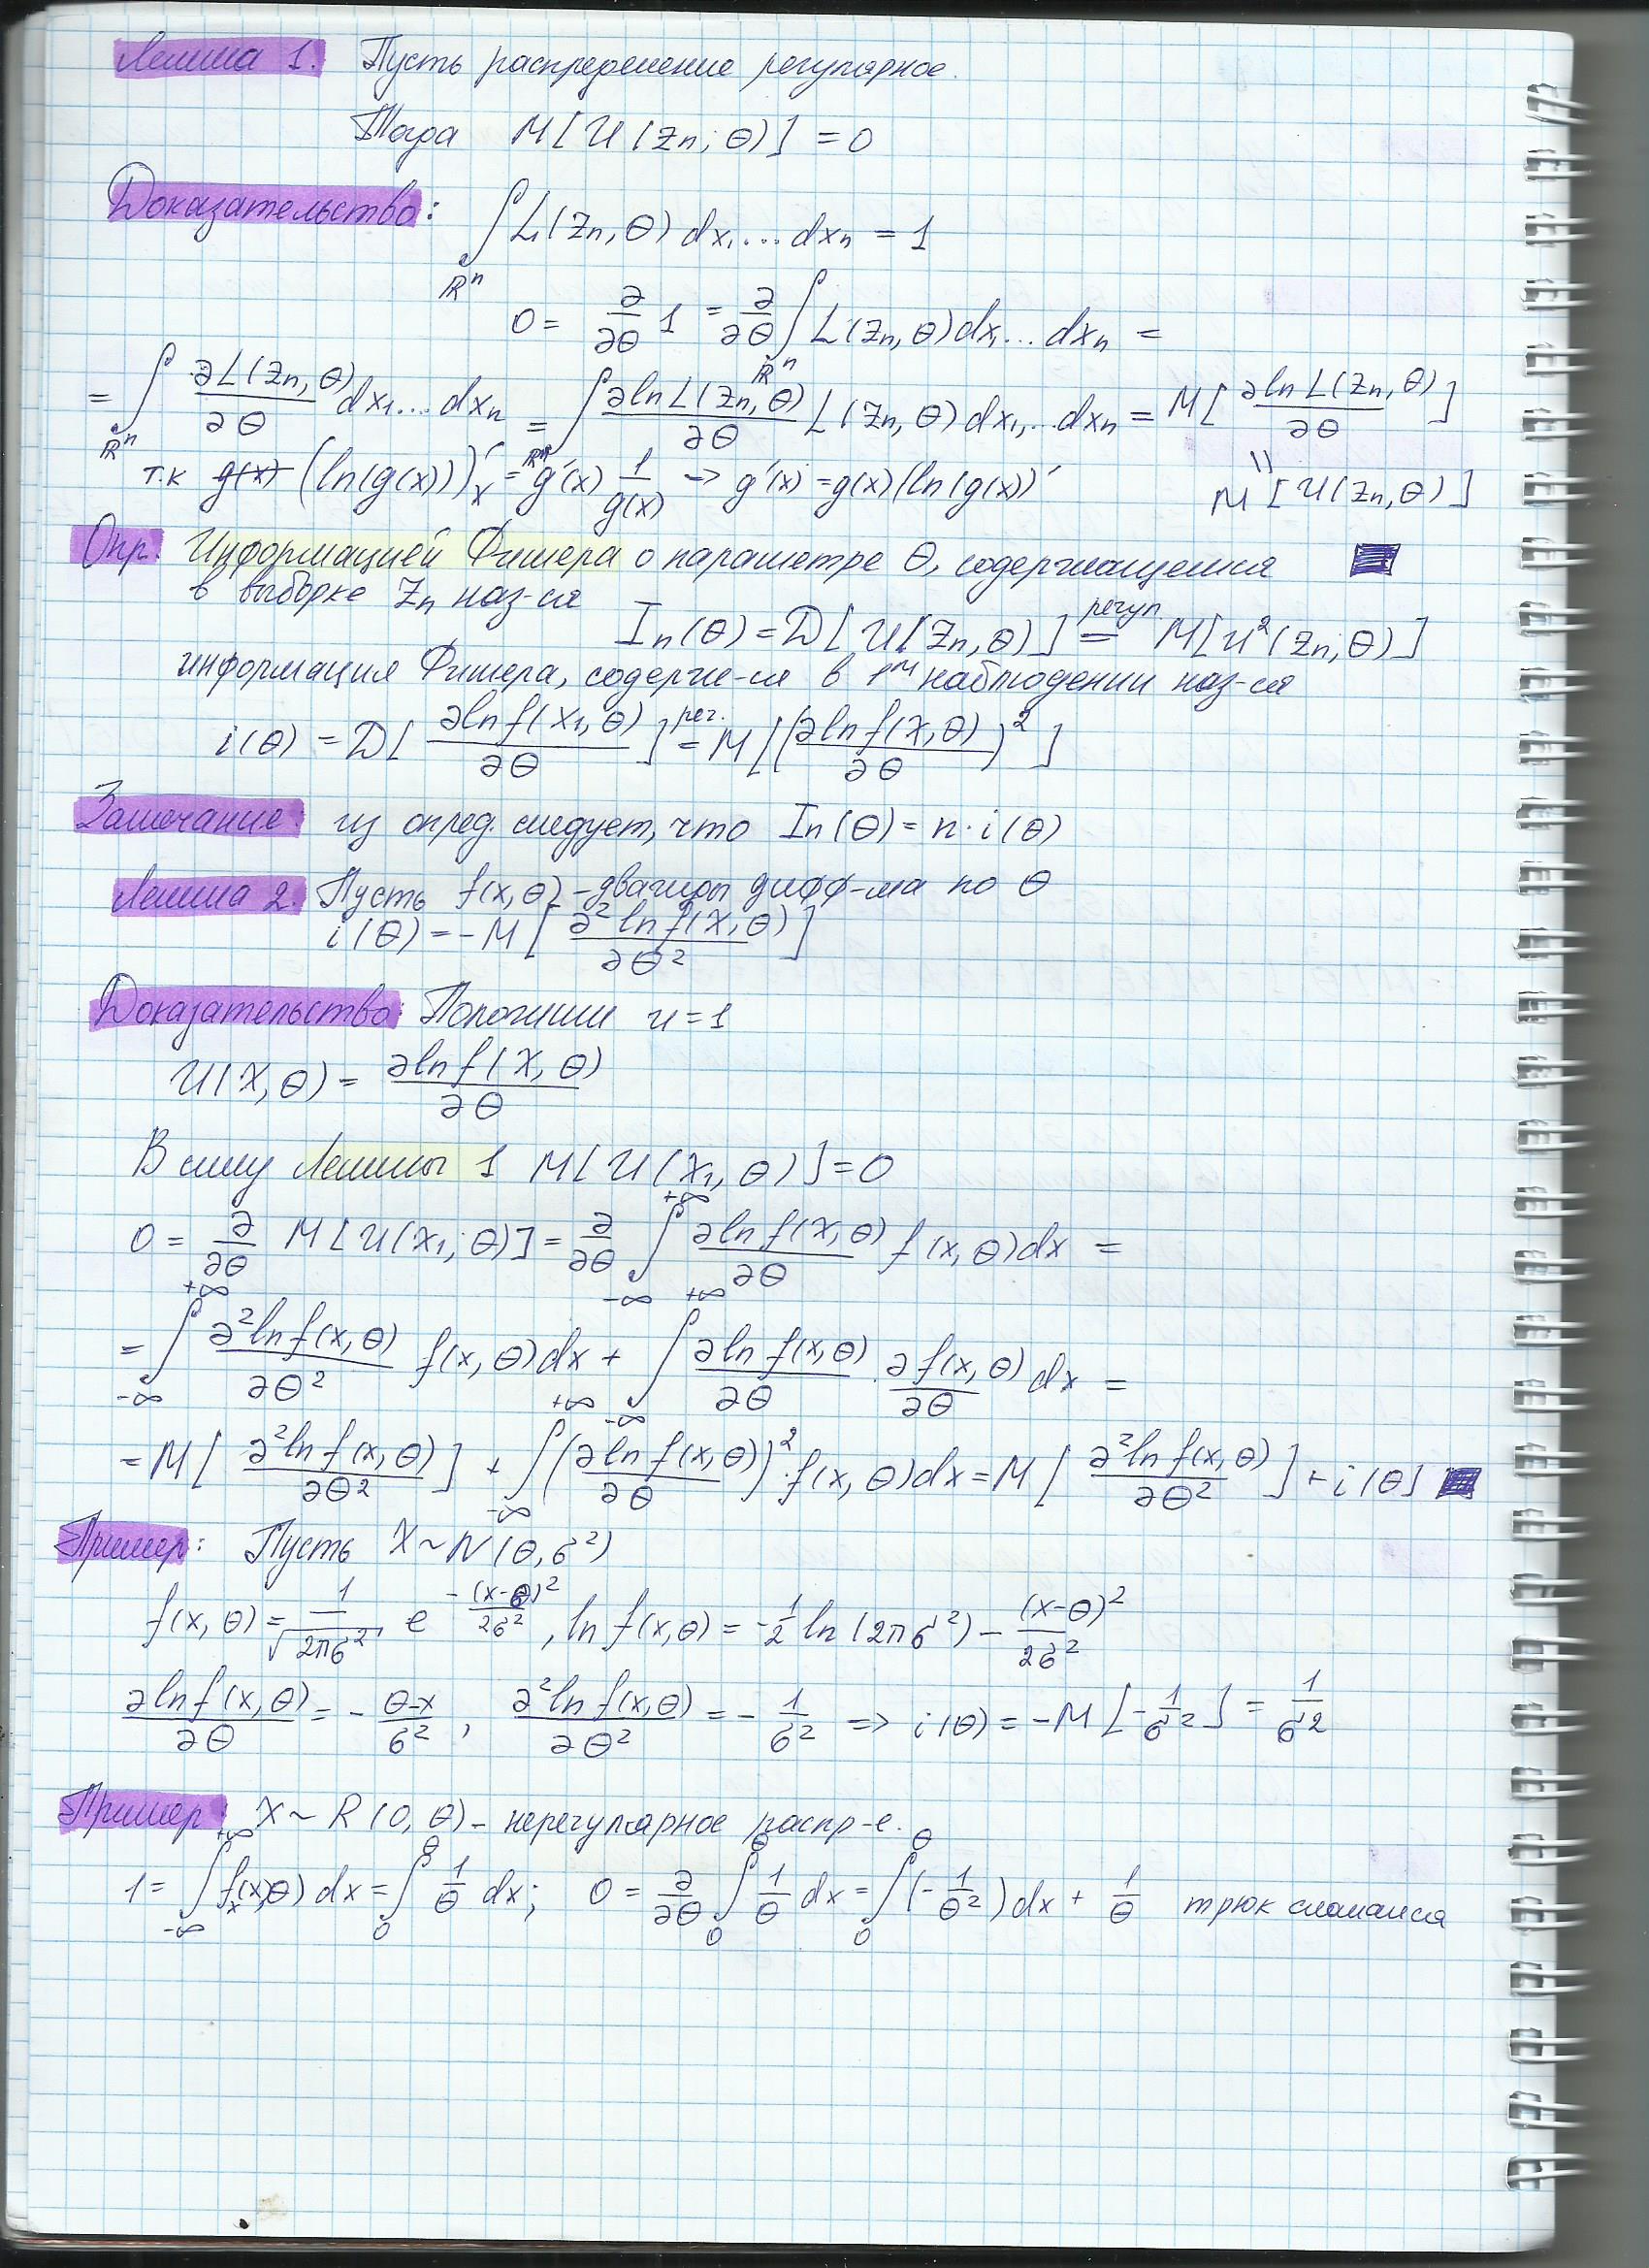 Лемма 1. Пусть распределение регулярное.
Тогда M[U(Zn; θ)] = 0
Доказательство: ∫_{ℝⁿ} L(Zn, θ) dx₁...dxn = 1
0 = ∂/∂θ 1 = ∂/∂θ ∫_{ℝⁿ} L(Zn, θ) dx₁...dxn =
= ∫_{ℝⁿ} ∂L(Zn, θ)/∂θ dx₁...dxn = ∫_{ℝⁿ} ∂lnL(Zn, θ)/∂θ L(Zn, θ) dx₁...dxn = M[∂lnL(Zn, θ)/∂θ]
т.к g(x) (ln(g(x)))'ₓ = g'(x) 1/g(x) → g'(x) = g(x)(ln(g(x))' || M[U(Zn, θ)]
Опр. Информацией Фишера о параметре θ, содержащемся
в выборке Zn наз-ся
In(θ) = D[U(Zn, θ)] регул. = M[U²(Zn; θ)]
информация Фишера, содерж-ся в 1ᵒᵐ наблюдении наз-ся
i(θ) = D[∂lnf(X₁, θ)/∂θ] рег. = M[(∂lnf(X, θ)/∂θ)²]
Замечание: из опред. следует, что In(θ) = n·i(θ)
Лемма 2. Пусть f(x, θ) - дважды дифф-ма по θ
i(θ) = -M[∂²lnf(X, θ)/∂θ²]
Доказательство: Положим n=1
U(X, θ) = ∂lnf(X, θ)/∂θ
В силу Леммы 1 M[U(X₁, θ)] = 0
0 = ∂/∂θ M[U(X₁; θ)] = ∂/∂θ ∫_{-∞}^{+∞} ∂lnf(X, θ)/∂θ f(x, θ)dx =
= ∫_{-∞}^{+∞} ∂²lnf(x, θ)/∂θ² f(x, θ)dx + ∫_{-∞}^{+∞} ∂lnf(x, θ)/∂θ · ∂f(x, θ)/∂θ dx =
= M[∂²lnf(x, θ)/∂θ²] + ∫_{-∞}^{+∞} (∂lnf(x, θ)/∂θ)² · f(x, θ)dx = M[∂²lnf(x, θ)/∂θ²] + i(θ)
Пример: Пусть X ~ N(θ, σ²)
f(x, θ) = 1/√(2πσ²) e^{-(x-θ)²/2σ²}, lnf(x, θ) = -1/2 ln(2πσ²) - (x-θ)²/2σ²
∂lnf(x, θ)/∂θ = - (θ-x)/σ², ∂²lnf(x, θ)/∂θ² = - 1/σ² => i(θ) = -M[-1/σ²] = 1/σ²
Пример: X ~ R(0, θ) - нерегулярное распр-е.
1 = ∫_{-∞}^{+∞} fₓ(x, θ) dx = ∫_0^θ 1/θ dx; 0 = ∂/∂θ ∫_0^θ 1/θ dx = ∫_0^θ (-1/θ²) dx + 1/θ трюк сломался